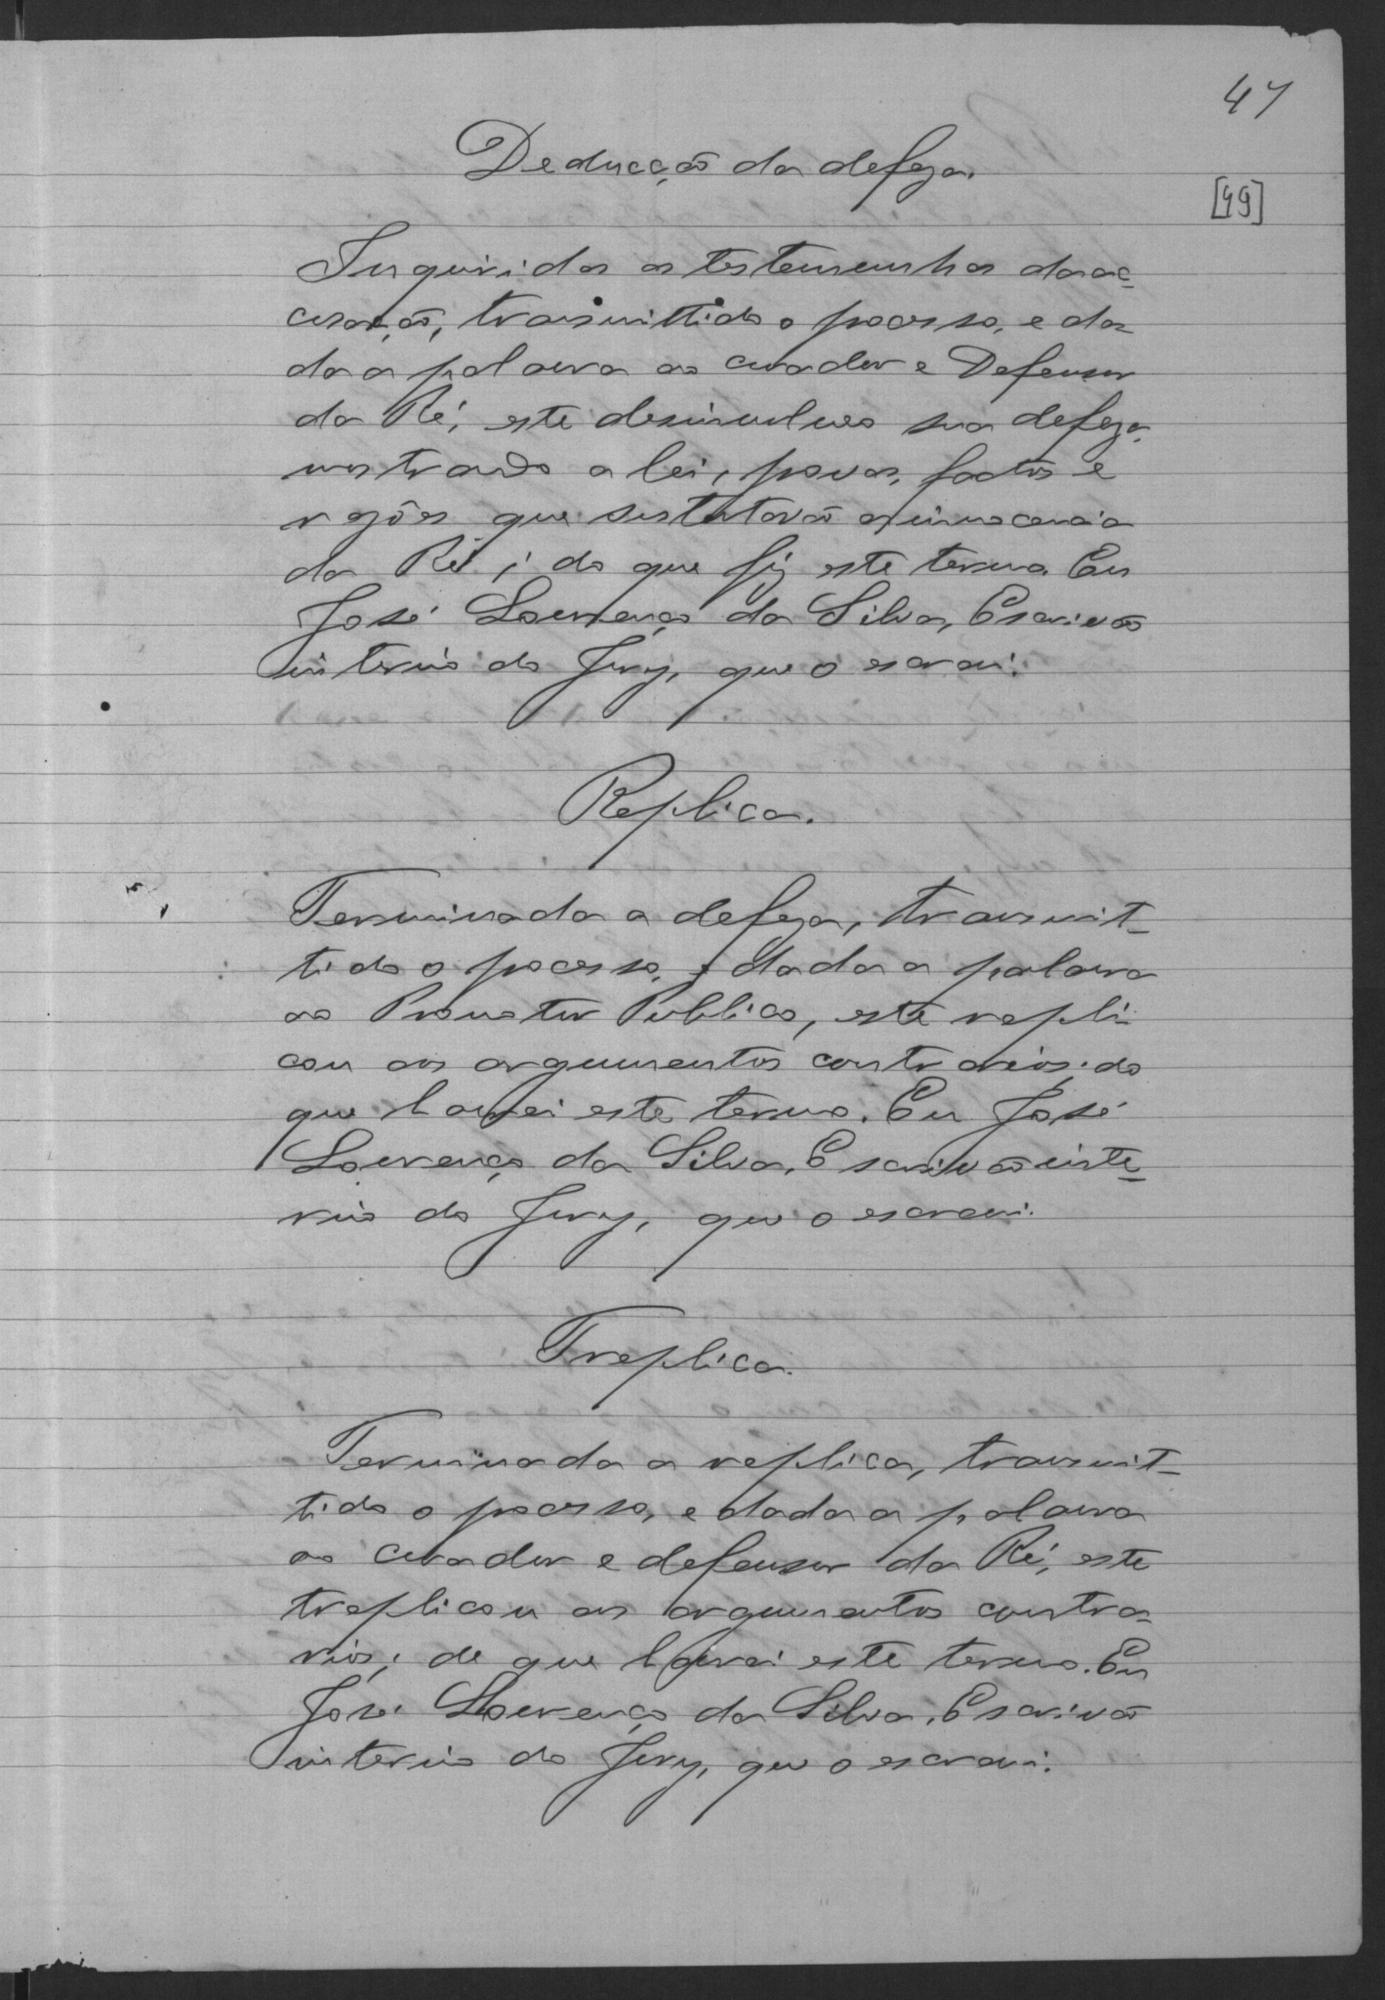 47
Deducção da defeza.
[49]
Inquiridas as testemunhas da ac-
cusação, transmittido o processo, e da-
da a palavra ao curador e Defensor
da Ré, este desinvolveo sua defeza,
mostrando a lei, provas, factos e
rasões que sustentavão a innocencia
da Ré; do que fiz este termo. Eu
José Lourenço da Silva, Escrivão
interino do Jury, que o escrevi.
Replica.
Terminada a defeza, transmit-
tido o processo, e dada a palavra
ao Promotor Publico, este repli-
cou aos argumentos contrarios; do
que lavrei este termo. Eu José
Lourenço da Silva, Escrivão inte-
rino do Jury, que o escrevi.
Treplica.
Terminada a replica, transmit-
tido o processo, e dada a palavra
ao curador e defensor da Ré, este
treplicou aos argumentos contra-
rios; de que lavrei este termo. Eu
José Lourenço da Silva, Escrivão
interino do Jury, que o escrevi.